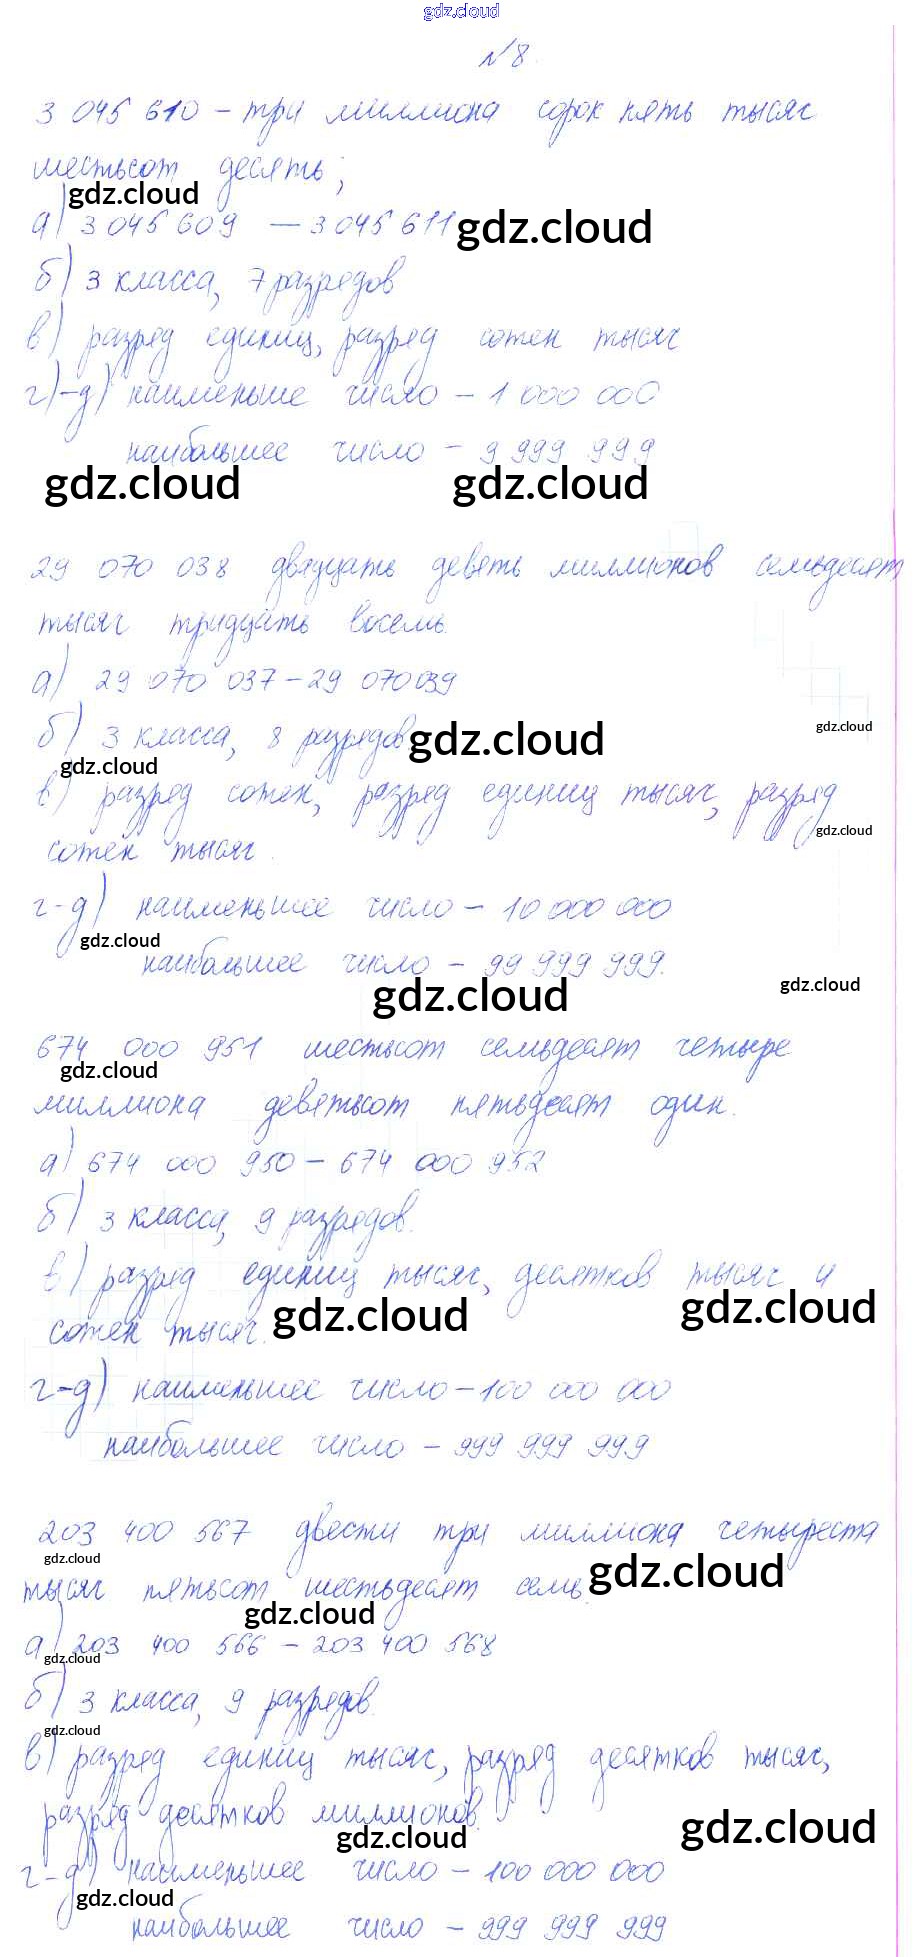 gdz.cloud
№8.
3 045 610 – три миллиона сорок пять тысяч
шестьсот десять;
gdz.cloud
а) 3 045 609 – 3 045 611
gdz.cloud
б) 3 класса, 7 разрядов
в) разряд единиц, разряд сотен тысяч
г)-д) наименьше число – 1 000 000
наибольшее число – 9 999 999
gdz.cloud gdz.cloud
29 070 038 двадцать девять миллионов семьдесят
тысяч тридцать восемь.
а) 29 070 037 – 29 070 039
gdz.cloud
б) 3 класса, 8 разрядов.
gdz.cloud
gdz.cloud
в) разряд сотен, разряд единиц тысяч, разряд
gdz.cloud
сотен тысяч.
г-д) наименьшее число – 10 000 000
gdz.cloud
наибольшее число – 99 999 999.
gdz.cloud
gdz.cloud
674 000 951 шестьсот семьдесят четыре
gdz.cloud
миллиона девятьсот пятьдесят один.
а) 674 000 950 – 674 000 952
б) 3 класса, 9 разрядов.
в) разряд единиц тысяч, десятков тысяч и
gdz.cloud gdz.cloud
сотен тысяч.
г-д) наименьшее число – 100 000 000
наибольшее число – 999 999 999
203 400 567 двести три миллиона четыреста
gdz.cloud
gdz.cloud
тысяч пятьсот шестьдесят семь.
gdz.cloud
а) 203 400 566 – 203 400 568
gdz.cloud
б) 3 класса, 9 разрядов.
gdz.cloud
в) разряд единиц тысяч, разряд десятков тысяч,
разряд десятков миллионов.
gdz.cloud gdz.cloud
г-д) наименьшее число – 100 000 000
gdz.cloud
наибольшее число – 999 999 999